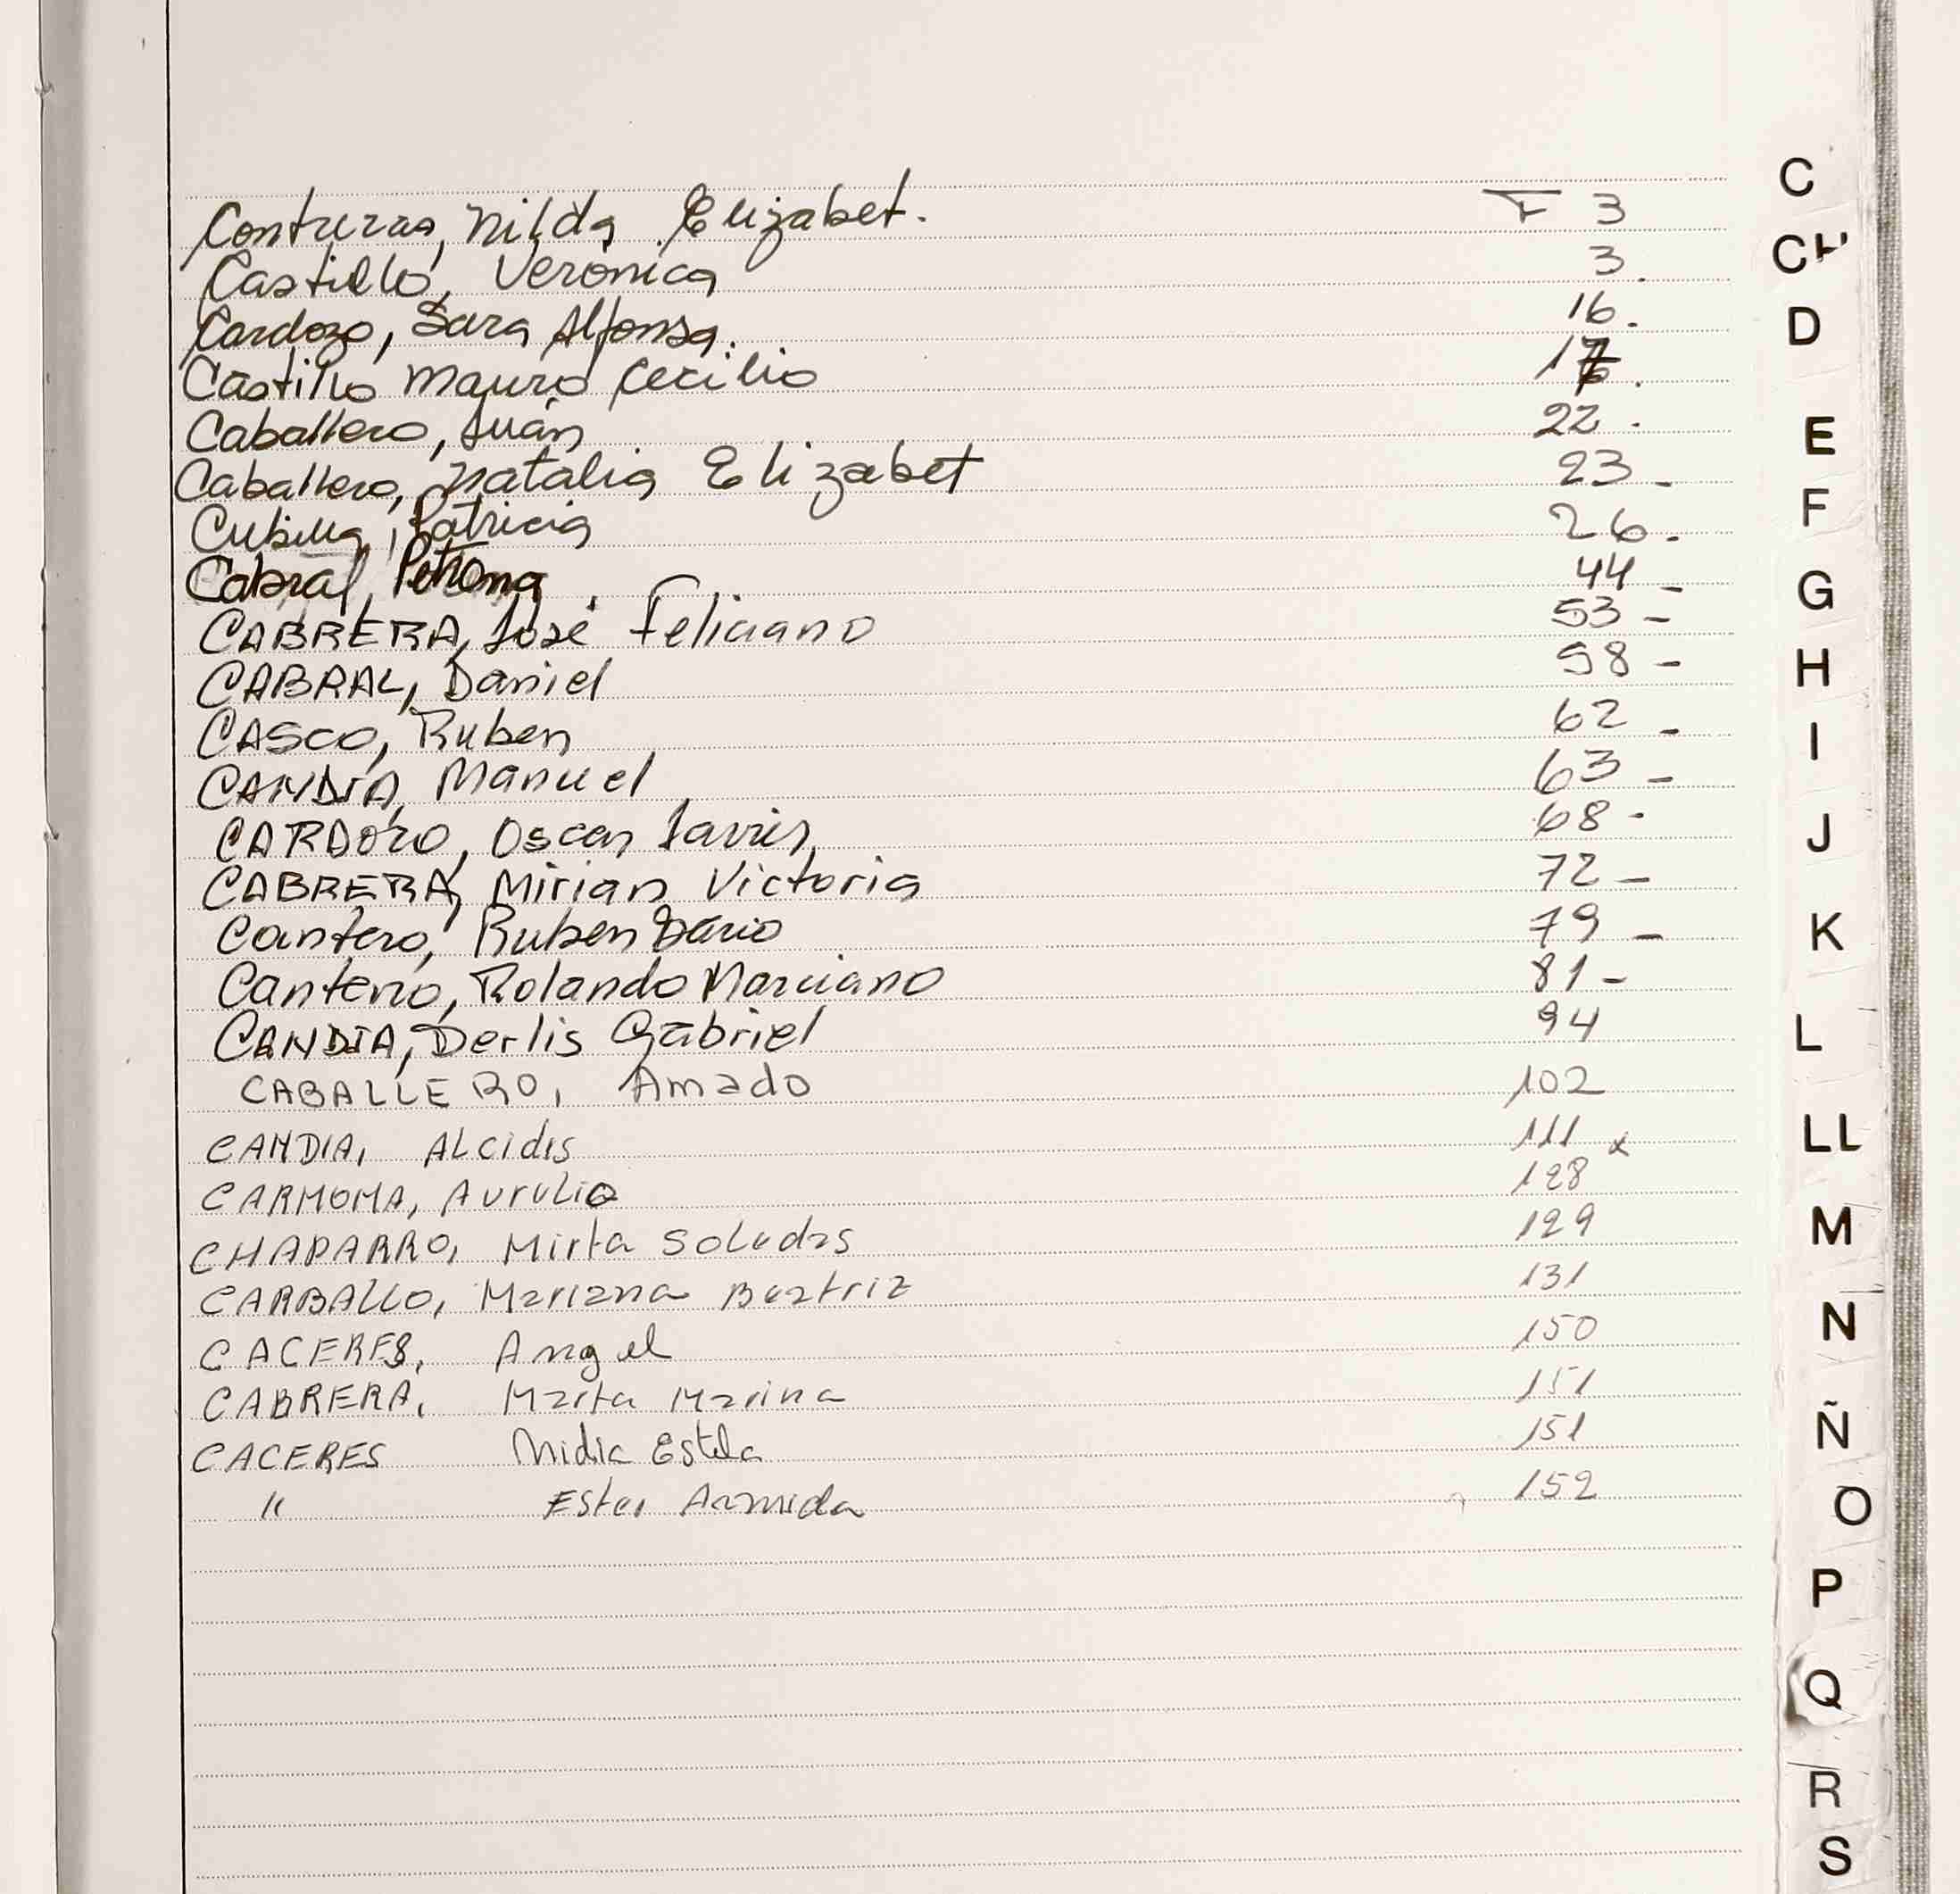 Contreras, Nilda Elizabet. F 3
Castillo, Verónica 3.
Cardozo, Sara Alfonsa. 16.
Castillo Mauro Cecilio 17.
Caballero, Juan 22.
Caballero, Natalia Elizabet 23-
Cubilla, Patricia 26.
Cabral, Petrona 44-
CABRERA, José Feliciano 53-
CABRAL, Daniel 58-
CASCO, Ruben 62-
CANDIA, Manuel 63-
CARDOZO, Oscar Javier 68-
CABRERA, Mirian Victoria 72-
Cantero, Ruben Dario 79-
Cantero, Rolando Marciano 81-
CANDIA, Derlis Gabriel 94
CABALLERO, Amado 102
CANDIA, ALcides 111 x
CARMONA, Aurelio 128
CHAPARRO, Mirta Soledas 129
CARBALLO, Mariana Beatriz 131
CACERES, Angel 150
CABRERA, Marta Marina 151
CACERES Nidia Estela 151
" Ester Armida 152
C
CH
D
E
F
G
H
I
J
K
L
LL
M
N
Ñ
O
P
Q
R
S